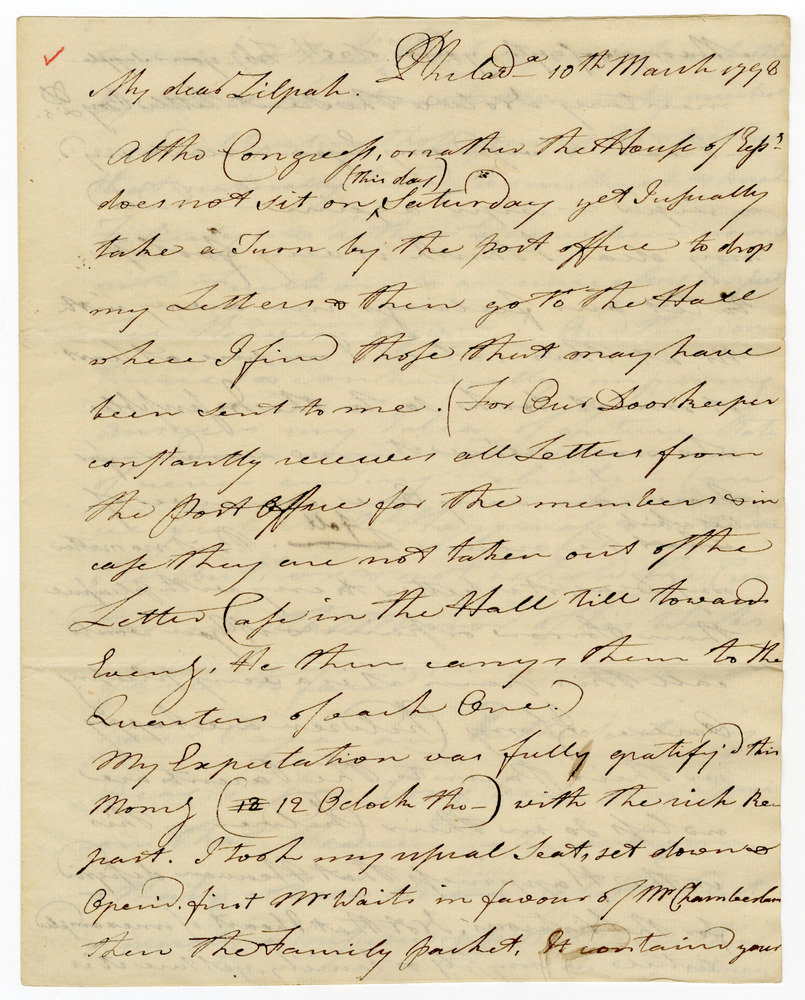 Philada. 10th March 1798
My dear Zilpah.
Altho Congress, or rather the House of Reps.
(this day)
does not sit on ^ Saturday yet I usually
take a Turn by the post office to drop
my Letters & then go to the Hall
where I find those that may have
been sent to me. (For Our Doorkeeper
constantly receives all Letters from
the Post Office for the members & in
case they are not taken out of the
Letter Case in the Hall till towards
Eveng, He then carrys them to the
Quarters of each One.)
My Expectation was fully gratify'd this
Morng (12 12 Oclock tho—) with the rich Re-
past. I took my usual Seat, set down &
Open'd first Mr Waits in favour of Mr Chamberlain
then the Family packet. It containd your